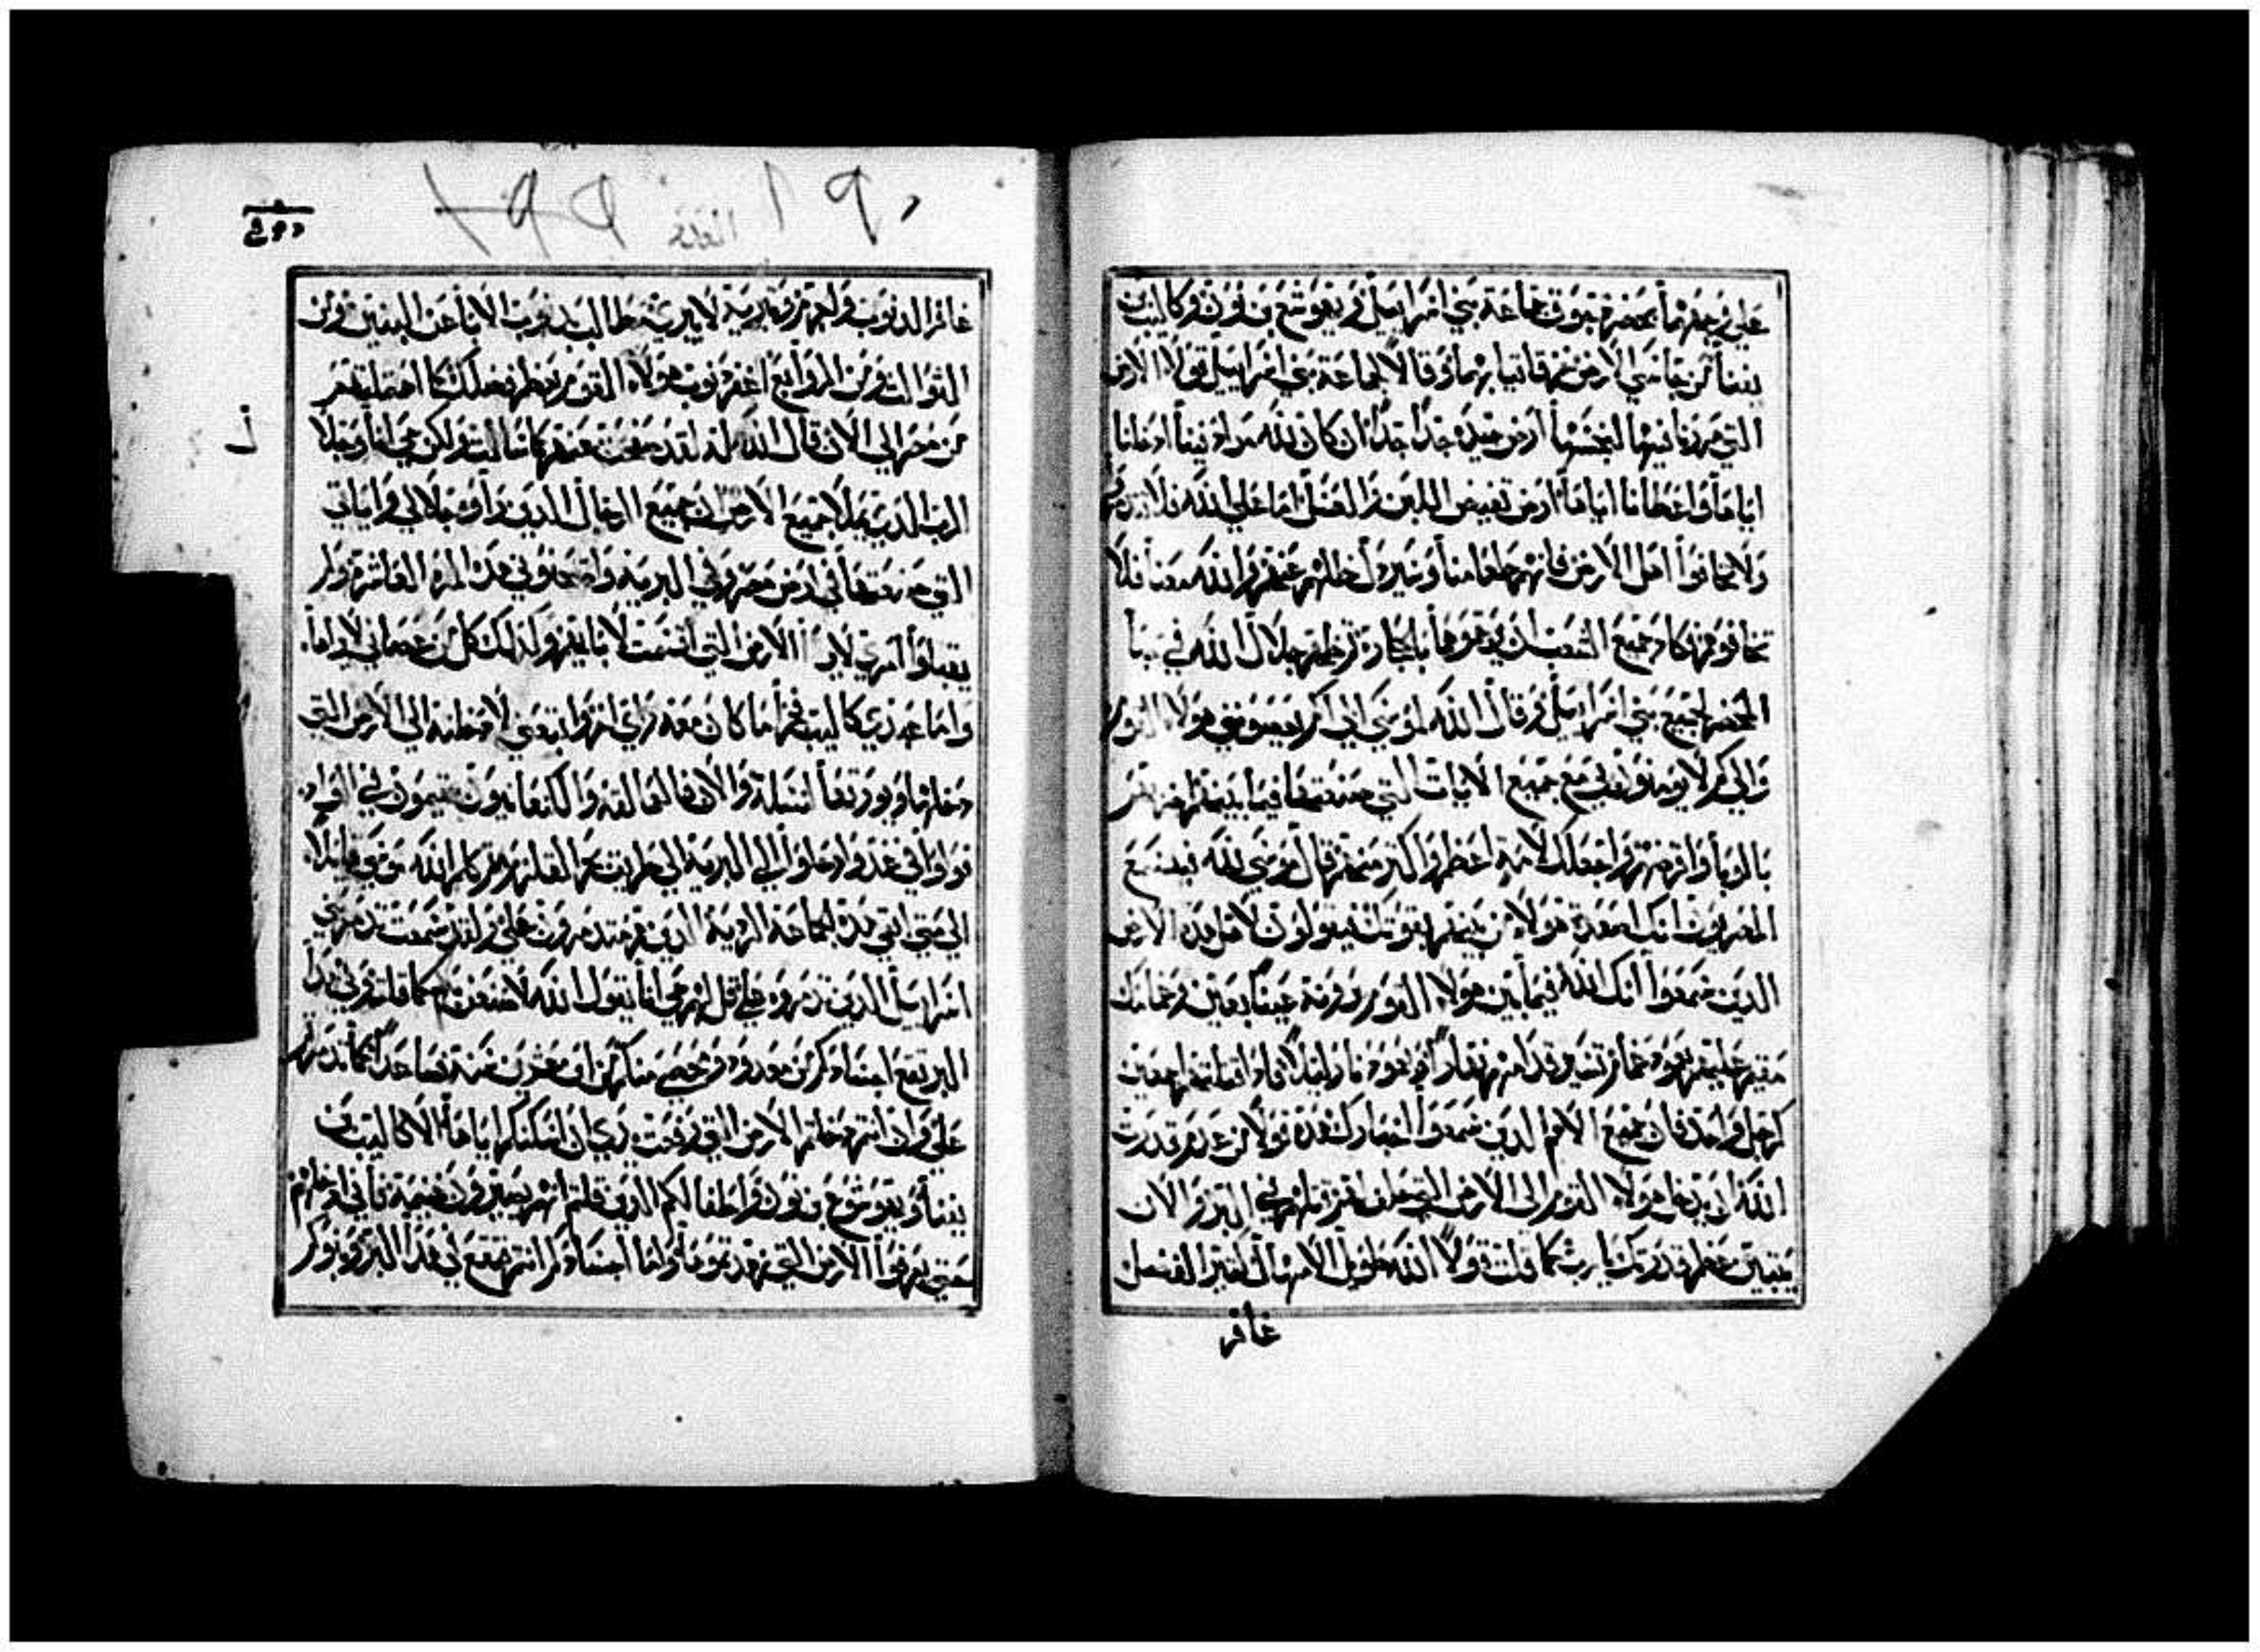 علي وجههما بحضرة جوق جماعة بني اسراييل ويوشع بن نون وكاليب بن
يفنا من جاسي الارض مزقا ثيابهما وقالا لجماعة بني اسراييل قولا الارض
التي مررنا فيها لنجسها ارض جيدة جدا جدا ان كان الله مراده فينا ادخلنا
اياها واعطانا اياها ارض تفيض اللبن والعسل اما علي الله فلا
ولا تخافوا اهل الارض فانهم طعامنا وسيزول ظلهم عنهم والله معنا فلا
تخافوهم كاد جميع الشعب ان يرجموهما بالحجارة وظهر جلال الله في خبا
المحضر لجميع بني اسراييل وقال الله لموسي الي كم يعصوني هولاء القوم
والي كم لا يومنون بي مع جميع الايات التي صنعتها فيما بينهم
بالوبا واقرضهم واجعلك لامة اعظم واكبر منهم قال موسي لله فيسمع
المصريون انك اصعدت هولاء من بينهم بقوتك فيقولون لاهل هذه الارض
الذين سمعوا انك الله فيما بين هولاء القوم عينا بعين وغمامك
مقيم عليهم بعمود غمام تسير قدامهم نهارا وبعمود نار ليلا فاذا قتلتهم اجمعين
كرجل واحد فان جميع الامم الذين سمعوا اخبارك هذه قولا من عدم قدرت
الله ان يدخل هولاء القوم الي الارض التي حلف لهم قتلهم في البر والان
يتبين عظم قدرتك يارب كما قلت قولا الله طويل الامهال كثير الفضل
غافر
انعدد
غافر الذنوب والجرم وتبرية لا يبرية طالب ذنوب الابا عن البنين ومن
الثوالث ومن الروابع اغفر ذنوب هولاء القوم بعظم فضلك كما احتملتهم
من مصر الي الان قال الله له لقد صفحت عنهم كما سالت ولكن حي انا وجلا
الرب الذي يملا جميع الارض ان جميع الرجال الذين راوا جلالي واياتي
التي صنعتها في ارض مصر وفي البرية وامتحنوني هذه المرة العاشرة ولم
يقبلوا امري لا يرا الارض التي اقسمت لابايهم وكذلك كل من عصاني لا يراها
واما عبدي كاليب فجزا ما كان معه راي اخر واتبعني لادخلنه الي الارض التي
دخلها ويورثها نسله والان فالعمالقة والكنعانيون مقيمون في الغور
فولوا في غد وارحلوا الي البرية الي طريق بحر القلزم ثم كلم الله موسي قايلا
الي متي ابقي هذه الجماعة الردية الذين هم متذمرون علي ولقد سمعت تذمر بني
اسراييل الذين تذمروه علي قل لهم حي انا يقول الله لاصنعن بكم كما قلتم في هذا
البر تقع اجسادكم من معدود ومحصي منكم من ابن عشرين سنة فصاعدا كما تذمرتم
علي وان انتم دخلتم الارض التي رفعت يدي ان اسكنكم اياها الا كاليب بن
يفنا ويوشع بن نون واطفالكم الذين قلتم انهم يصيرون غنيمة فاني ادخلهم
حتي يعرفوا الارض التي زهدتموها واما اجسادكم انتم تقع في هذا البر وبنوكم